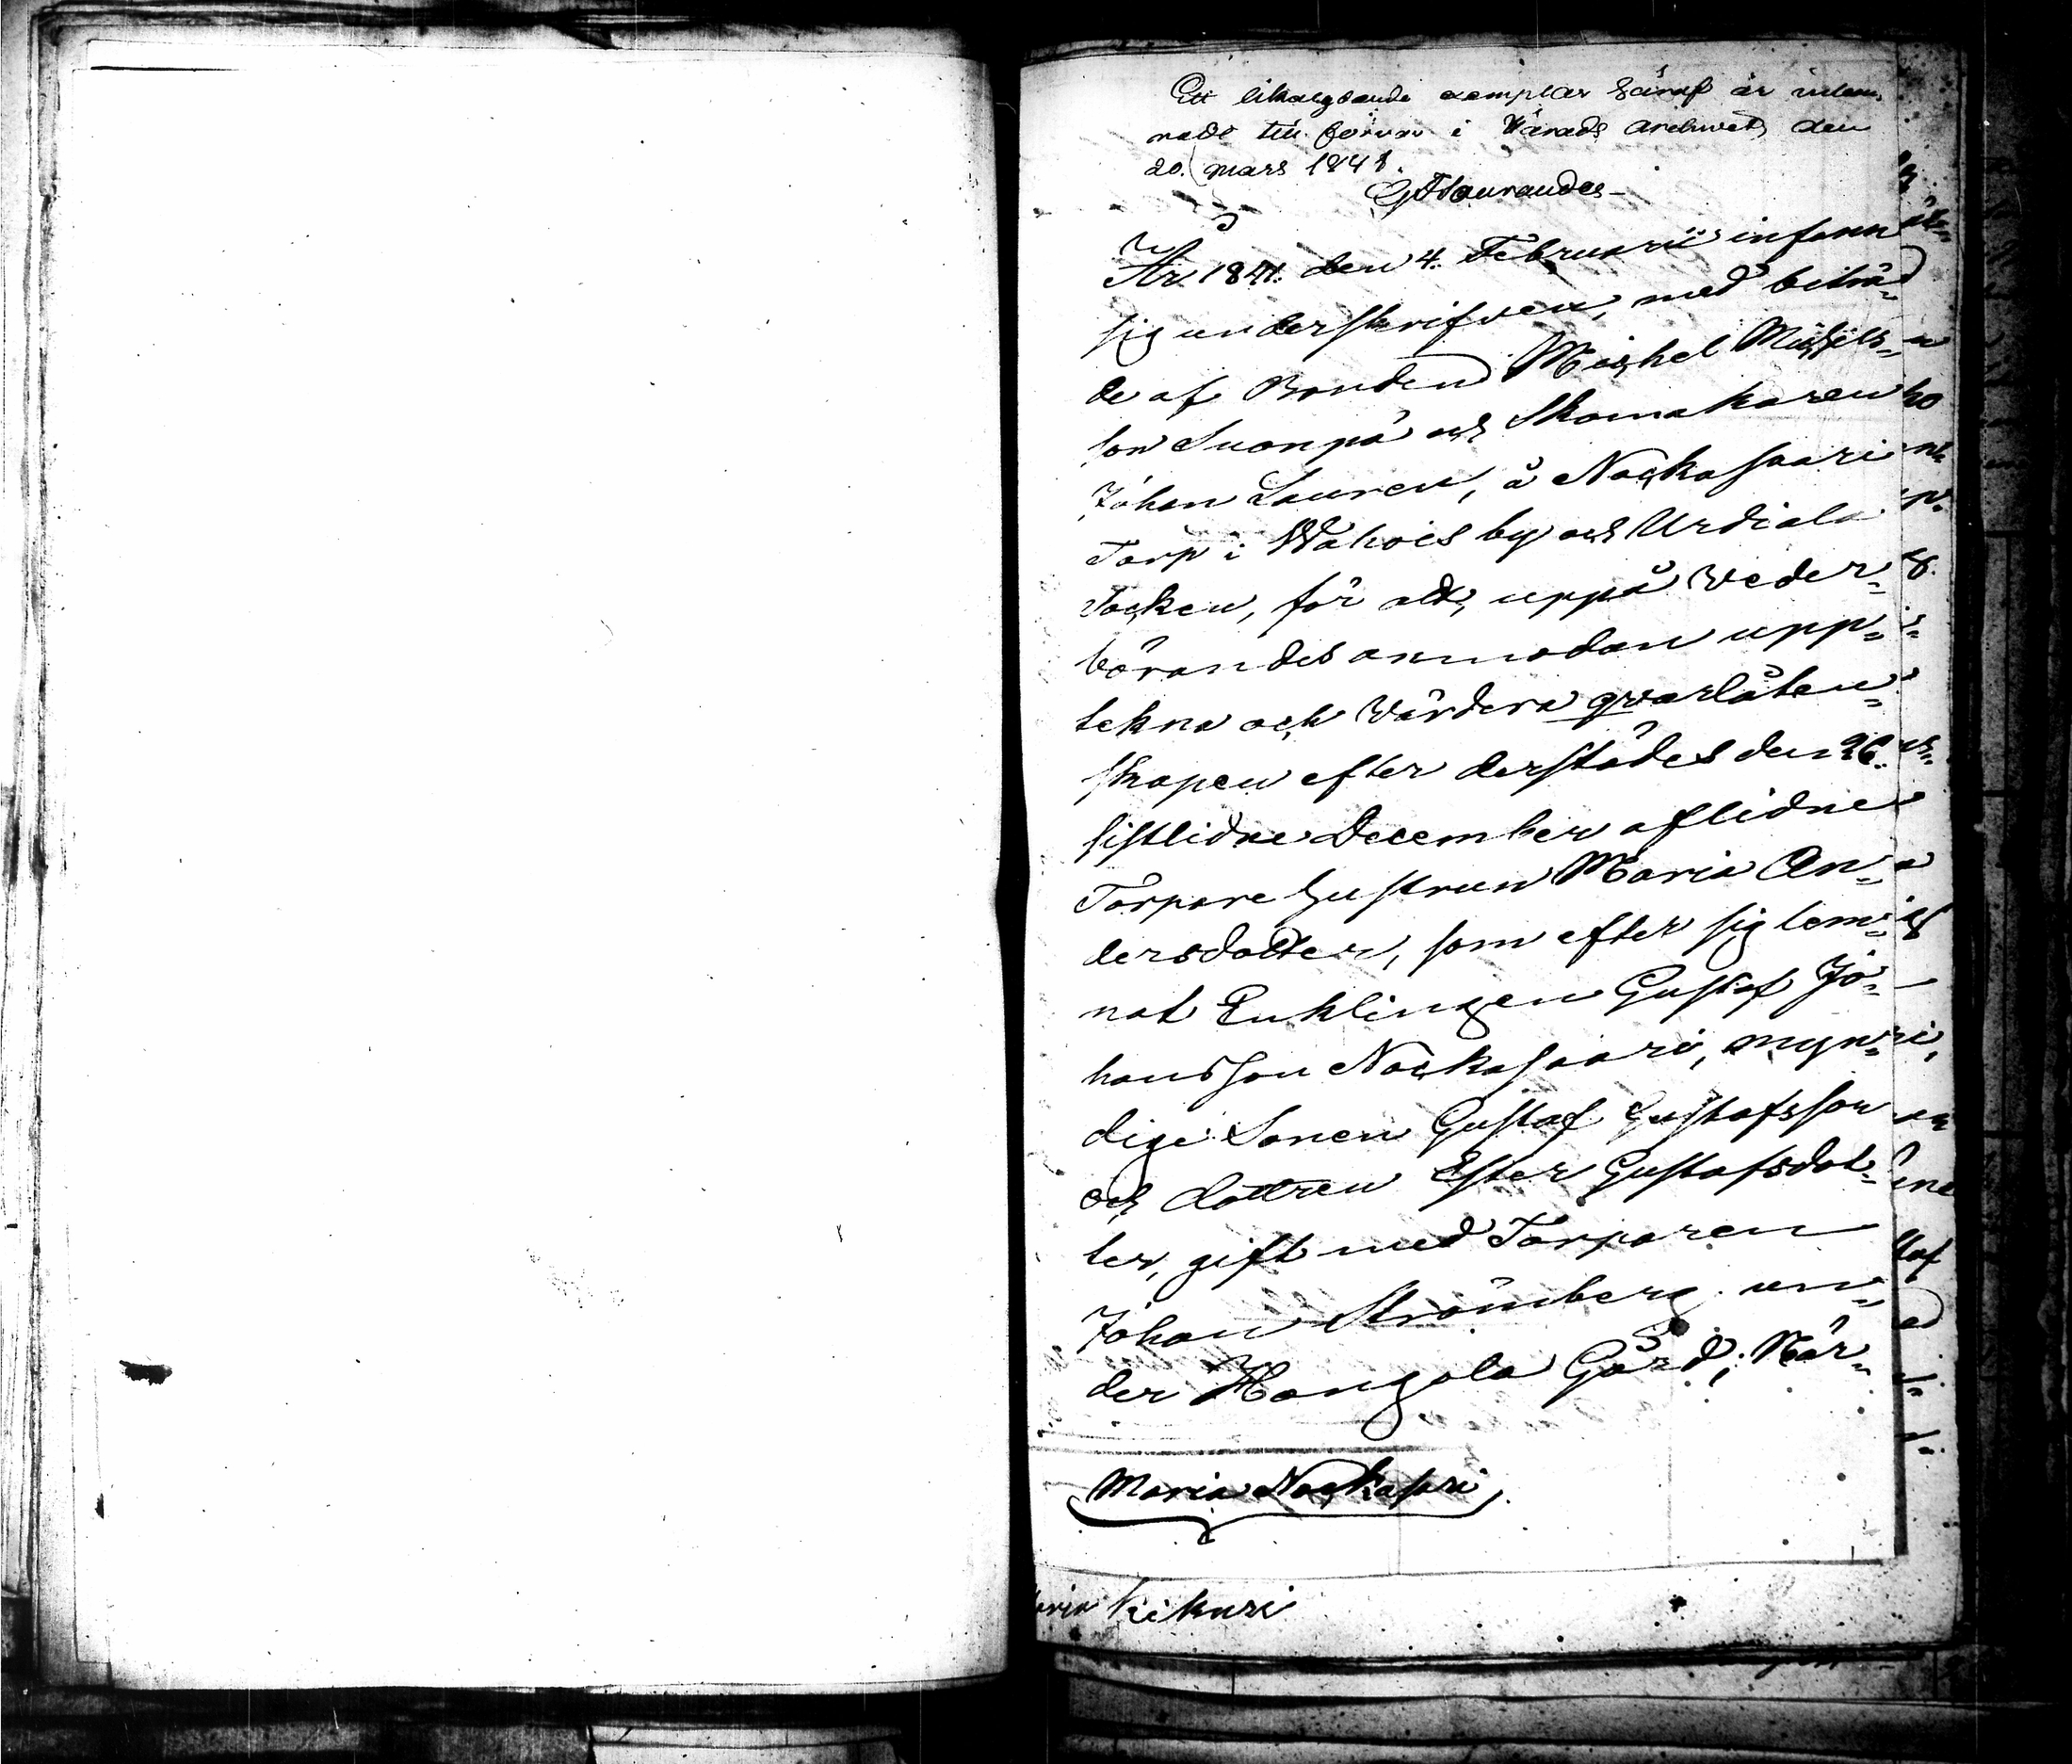 Ett likalydande exemplar häraf är inlem-
nadt till förvar i Härads Archivet, den
20. Mars 1841.
År 1841. den 4. Februarii infann
sig underskrifven, med biträ-
de af Bonden Michel Michels-
son Suonpä och Skomakaren
Johan Lauren, å Nockasaari
Torp i Wahois by och Urdiala
Socken, för att, uppå veder-
börandes anmodan upp-
tekna och värdera qvarlåten-
skapen efter derstädes den 26.
sistlidne December aflidne
Torpare hustrun Maria An-
dersdotter, som efter sig lem-
nat Enklingen Gustaf Jo-
hansson Nockasaari, myn-
dige Sonen Gustaf Gustafsson
och dottren Ester Gustafsdot-
ter, gift med Torparen
Johan Strömberg un-
der Hongola Gård; När-
Maria Nockasari
Kikuri